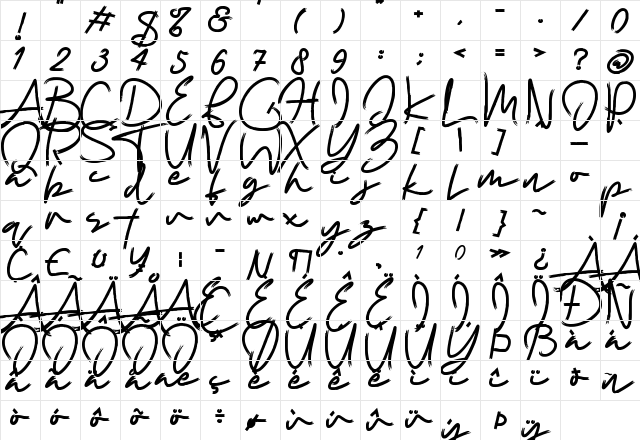 ! " # $ % & ( ) + , - . / 0
1 2 3 4 5 6 7 8 9 : ; < = > ? @
A B C D E F G H I J K L M N O P
Q R S T U V W X Y Z [ \ ] —
a b c d e g h i k l m n o p
q r s t u v w x y z { | } ~ ¡
¢ € ¤ ¥ ¦ ¯ « ¶ · ¸ ¹ º » ¿ À Á
Â Ã Ä Å Æ Ç È É Ê Ë Ì Í Î Ï Ð Ñ
Ò Ó Ô Õ Ö Ø Ù Ú Û Ü Ý Þ ß à á
â ã ä å æ ç è é ê ë ì í î ï ð ñ
ò ó ô õ ö ÷ ø ù ú û ü ý þ ÿ